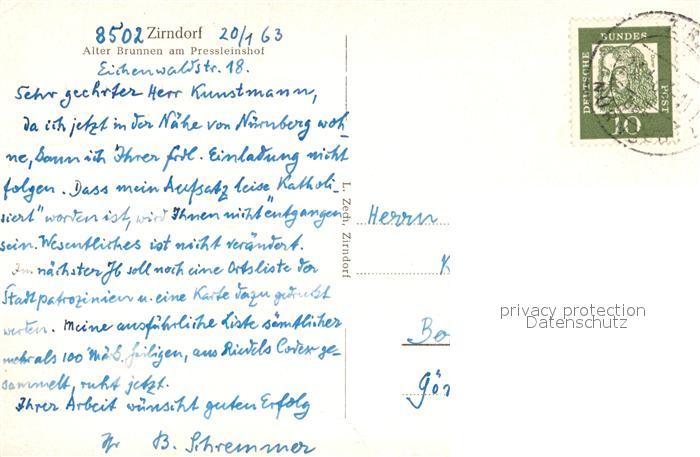 8502 Zirndorf 20/1 63
Alter Brunnen am Pressleinshof
Eichenwaldstr. 18.
Sehr geehrter Herr Kunstmann,
da ich jetzt in der Nähe von Nürnberg woh-
ne, kann ich Ihrer frdl. Einladung nicht
folgen. Dass mein Aufsatz leise "Katholi-
siert" worden ist, wird Ihnen nicht entgangen
sein. Wesentliches ist nicht verändert.
Im nächsten Jb soll noch eine Ortsliste der
Stadtpatrozinien u. eine Karte dazu gedruckt
werden. Meine ausführliche Liste sämtlicher
mehr als 100 märk. Heiligen, aus Riedels Codex ge-
sammelt, ruht jetzt.
Ihrer Arbeit wünscht guten Erfolg
Ihr B. Schremmer
L. Zech, Zirndorf
DEUTSCHE BUNDES POST
10
Herrn
K
Bo
Gör
privacy protection
Datenschutz